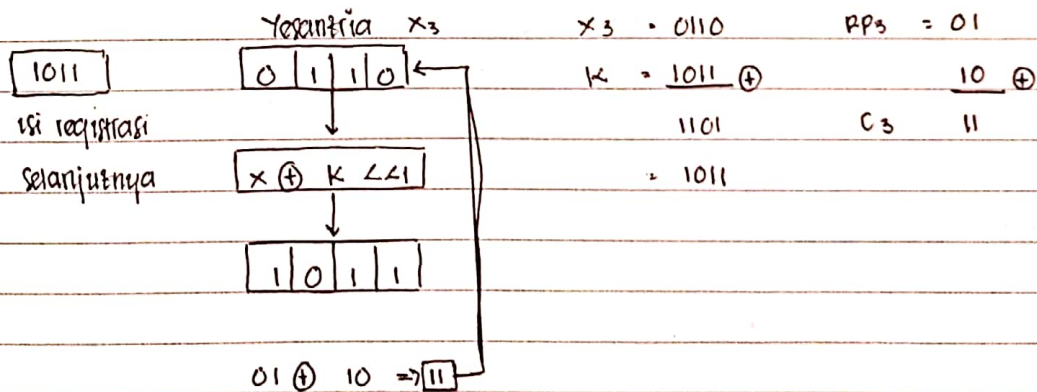 Yesantria X3 X3 = 0110 PP3 = 01
1011 0 1 1 0 K = 1011 ⊕ 10 ⊕
isi registrasi 1101 C3 11
selanjutnya X ⊕ K <<1 = 1011
1 0 1 1
01 ⊕ 10 => 11